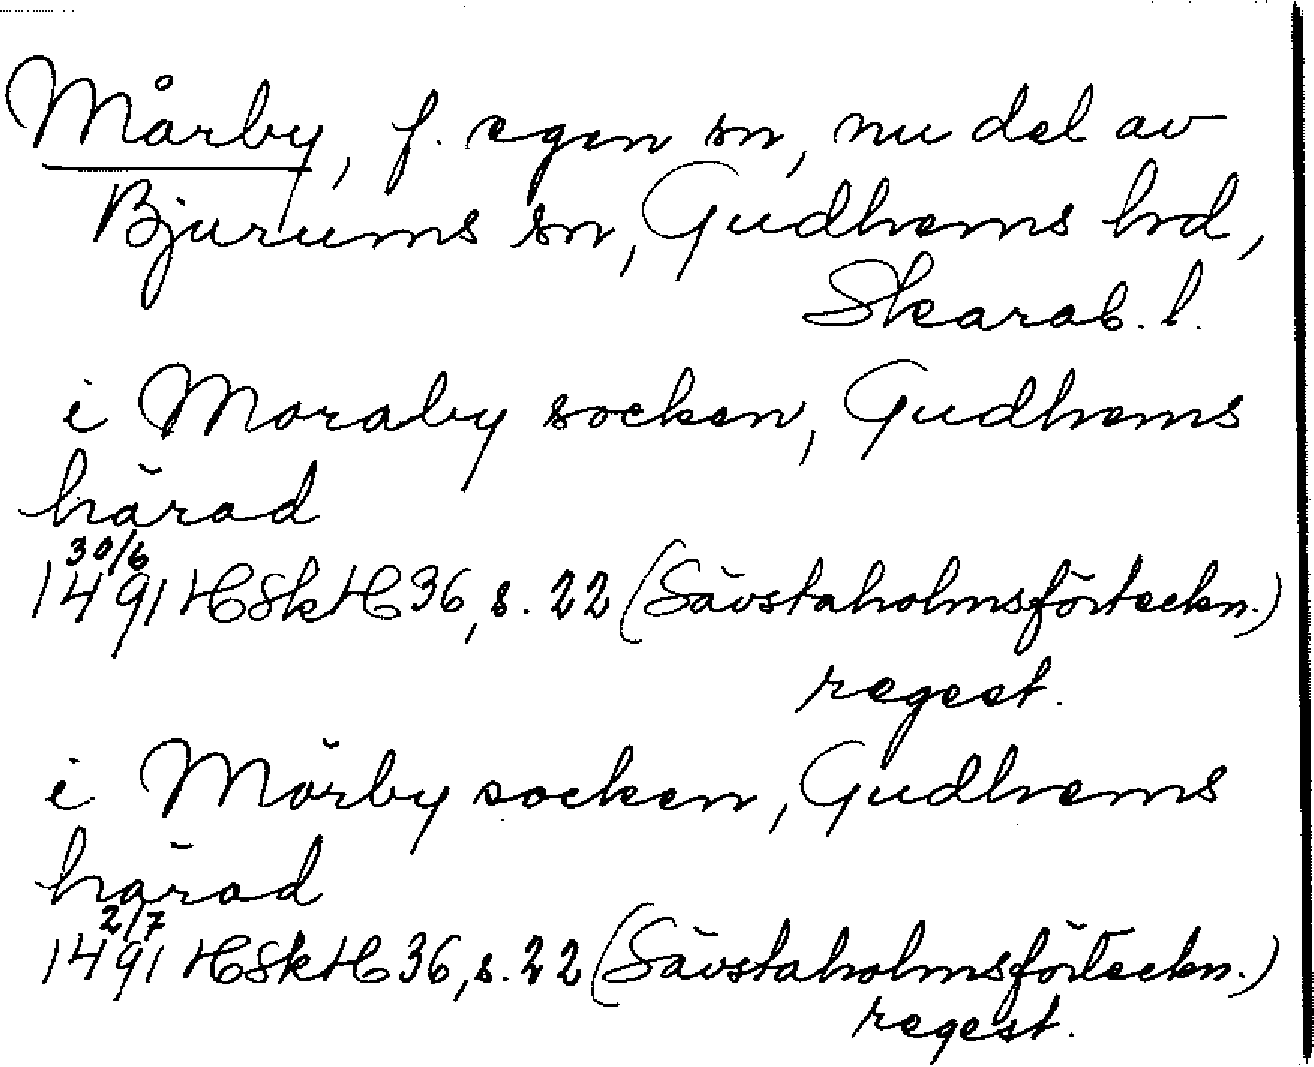 Mårby, f. egen sn, nu del av
Bjurums sn, Gudhems hrd,
Skarab. l.
i Moraby socken, Gudhems
härad
30/6
1491 HSkH 36, s. 22 (Sävstaholmsförteckn.)
regest.
i Mörby socken, Gudhems
härad
2/7
1491 HSkH 36, s. 22 (Sävstaholmsförteckn.)
regest.